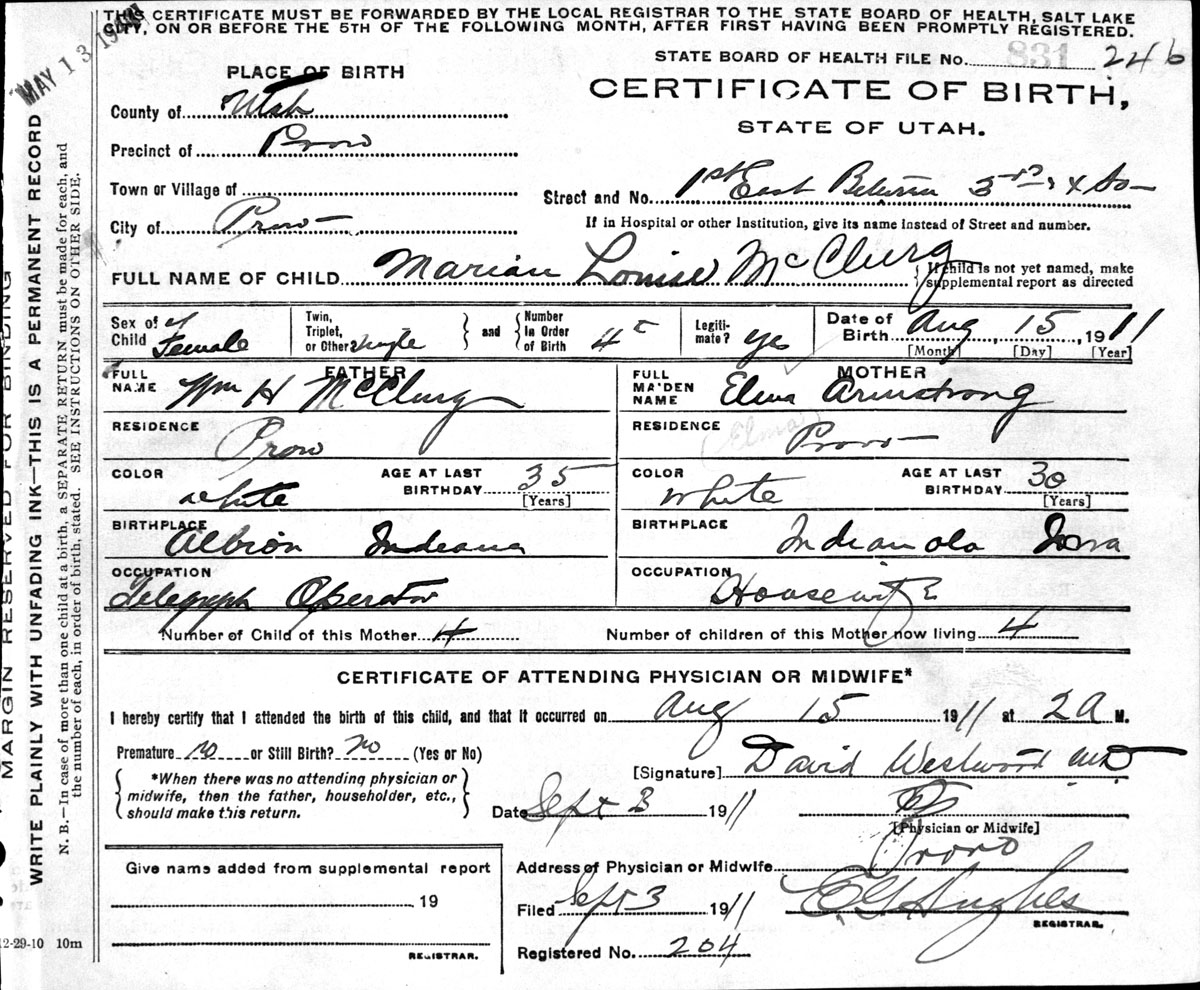 THIS CERTIFICATE MUST BE FORWARDED BY THE LOCAL REGISTRAR TO THE STATE BOARD OF HEALTH, SALT LAKE
CITY, ON OR BEFORE THE 5TH OF THE FOLLOWING MONTH, AFTER FIRST HAVING BEEN PROMPTLY REGISTERED.
MAY 13
STATE BOARD OF HEALTH FILE No. 831 246
CERTIFICATE OF BIRTH,
STATE OF UTAH.
PLACE OF BIRTH
County of Utah
Precinct of Provo
Town or Village of
City of Provo
Street and No. 1st East Between 3rd &
If in Hospital or other Institution, give its name instead of Street and number.
FULL NAME OF CHILD Marian Louise McClurg { If child is not yet named, make
supplemental report as directed
Sex of Child Female
Twin, Triplet, or Other single } and { Number in Order of Birth 4
Legiti-mate? yes
Date of Birth Aug 15, 1911
[Month] [Day] [Year]
FATHER
FULL NAME Wm H McClurg
RESIDENCE Provo
COLOR white AGE AT LAST BIRTHDAY 35 [Years]
BIRTHPLACE Albion Indiana
OCCUPATION Telegraph Operator
MOTHER
FULL MAIDEN NAME Elma Armstrong
(Elma)
RESIDENCE Provo
COLOR white AGE AT LAST BIRTHDAY 30 [Years]
BIRTHPLACE Indianola Iowa
OCCUPATION Housewife
Number of Child of this Mother 4 Number of children of this Mother now living 4
CERTIFICATE OF ATTENDING PHYSICIAN OR MIDWIFE*
I hereby certify that I attended the birth of this child, and that it occurred on Aug 15 1911 at 2 A M.
Premature no or Still Birth? no (Yes or No)
{ *When there was no attending physician or
midwife, then the father, householder, etc.,
should make this return. }
[Signature] David Westwood MD
Date Sept 3 1911
[Physician or Midwife]
Address of Physician or Midwife Provo
Filed Sept 3 1911 Hughes
REGISTRAR.
Registered No. 204
Give name added from supplemental report
19
REGISTRAR.
12-29-10 10m
MARGIN RESERVED FOR BINDING
WRITE PLAINLY WITH UNFADING INK—THIS IS A PERMANENT RECORD
N. B.—In case of more than one child at a birth, a SEPARATE RETURN must be made for each, and
the number of each, in order of birth, stated. SEE INSTRUCTIONS ON OTHER SIDE.